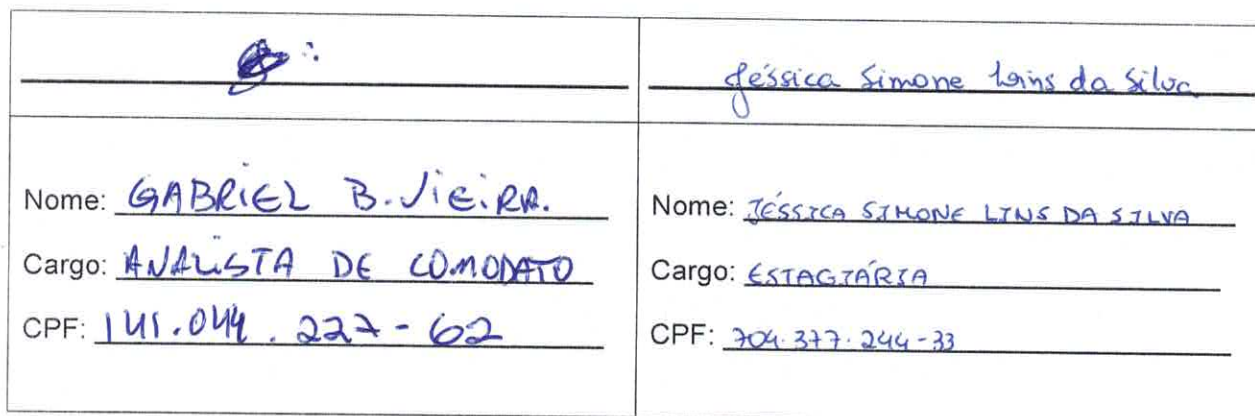 Jéssica Simone Lins da Silva
Nome: GABRIEL B. VIEIRA.
Cargo: ANALISTA DE COMODATO
CPF: 141.044.227-62
Nome: JÉSSICA SIMONE LINS DA SILVA
Cargo: ESTAGIÁRIA
CPF: 704.377.244-33